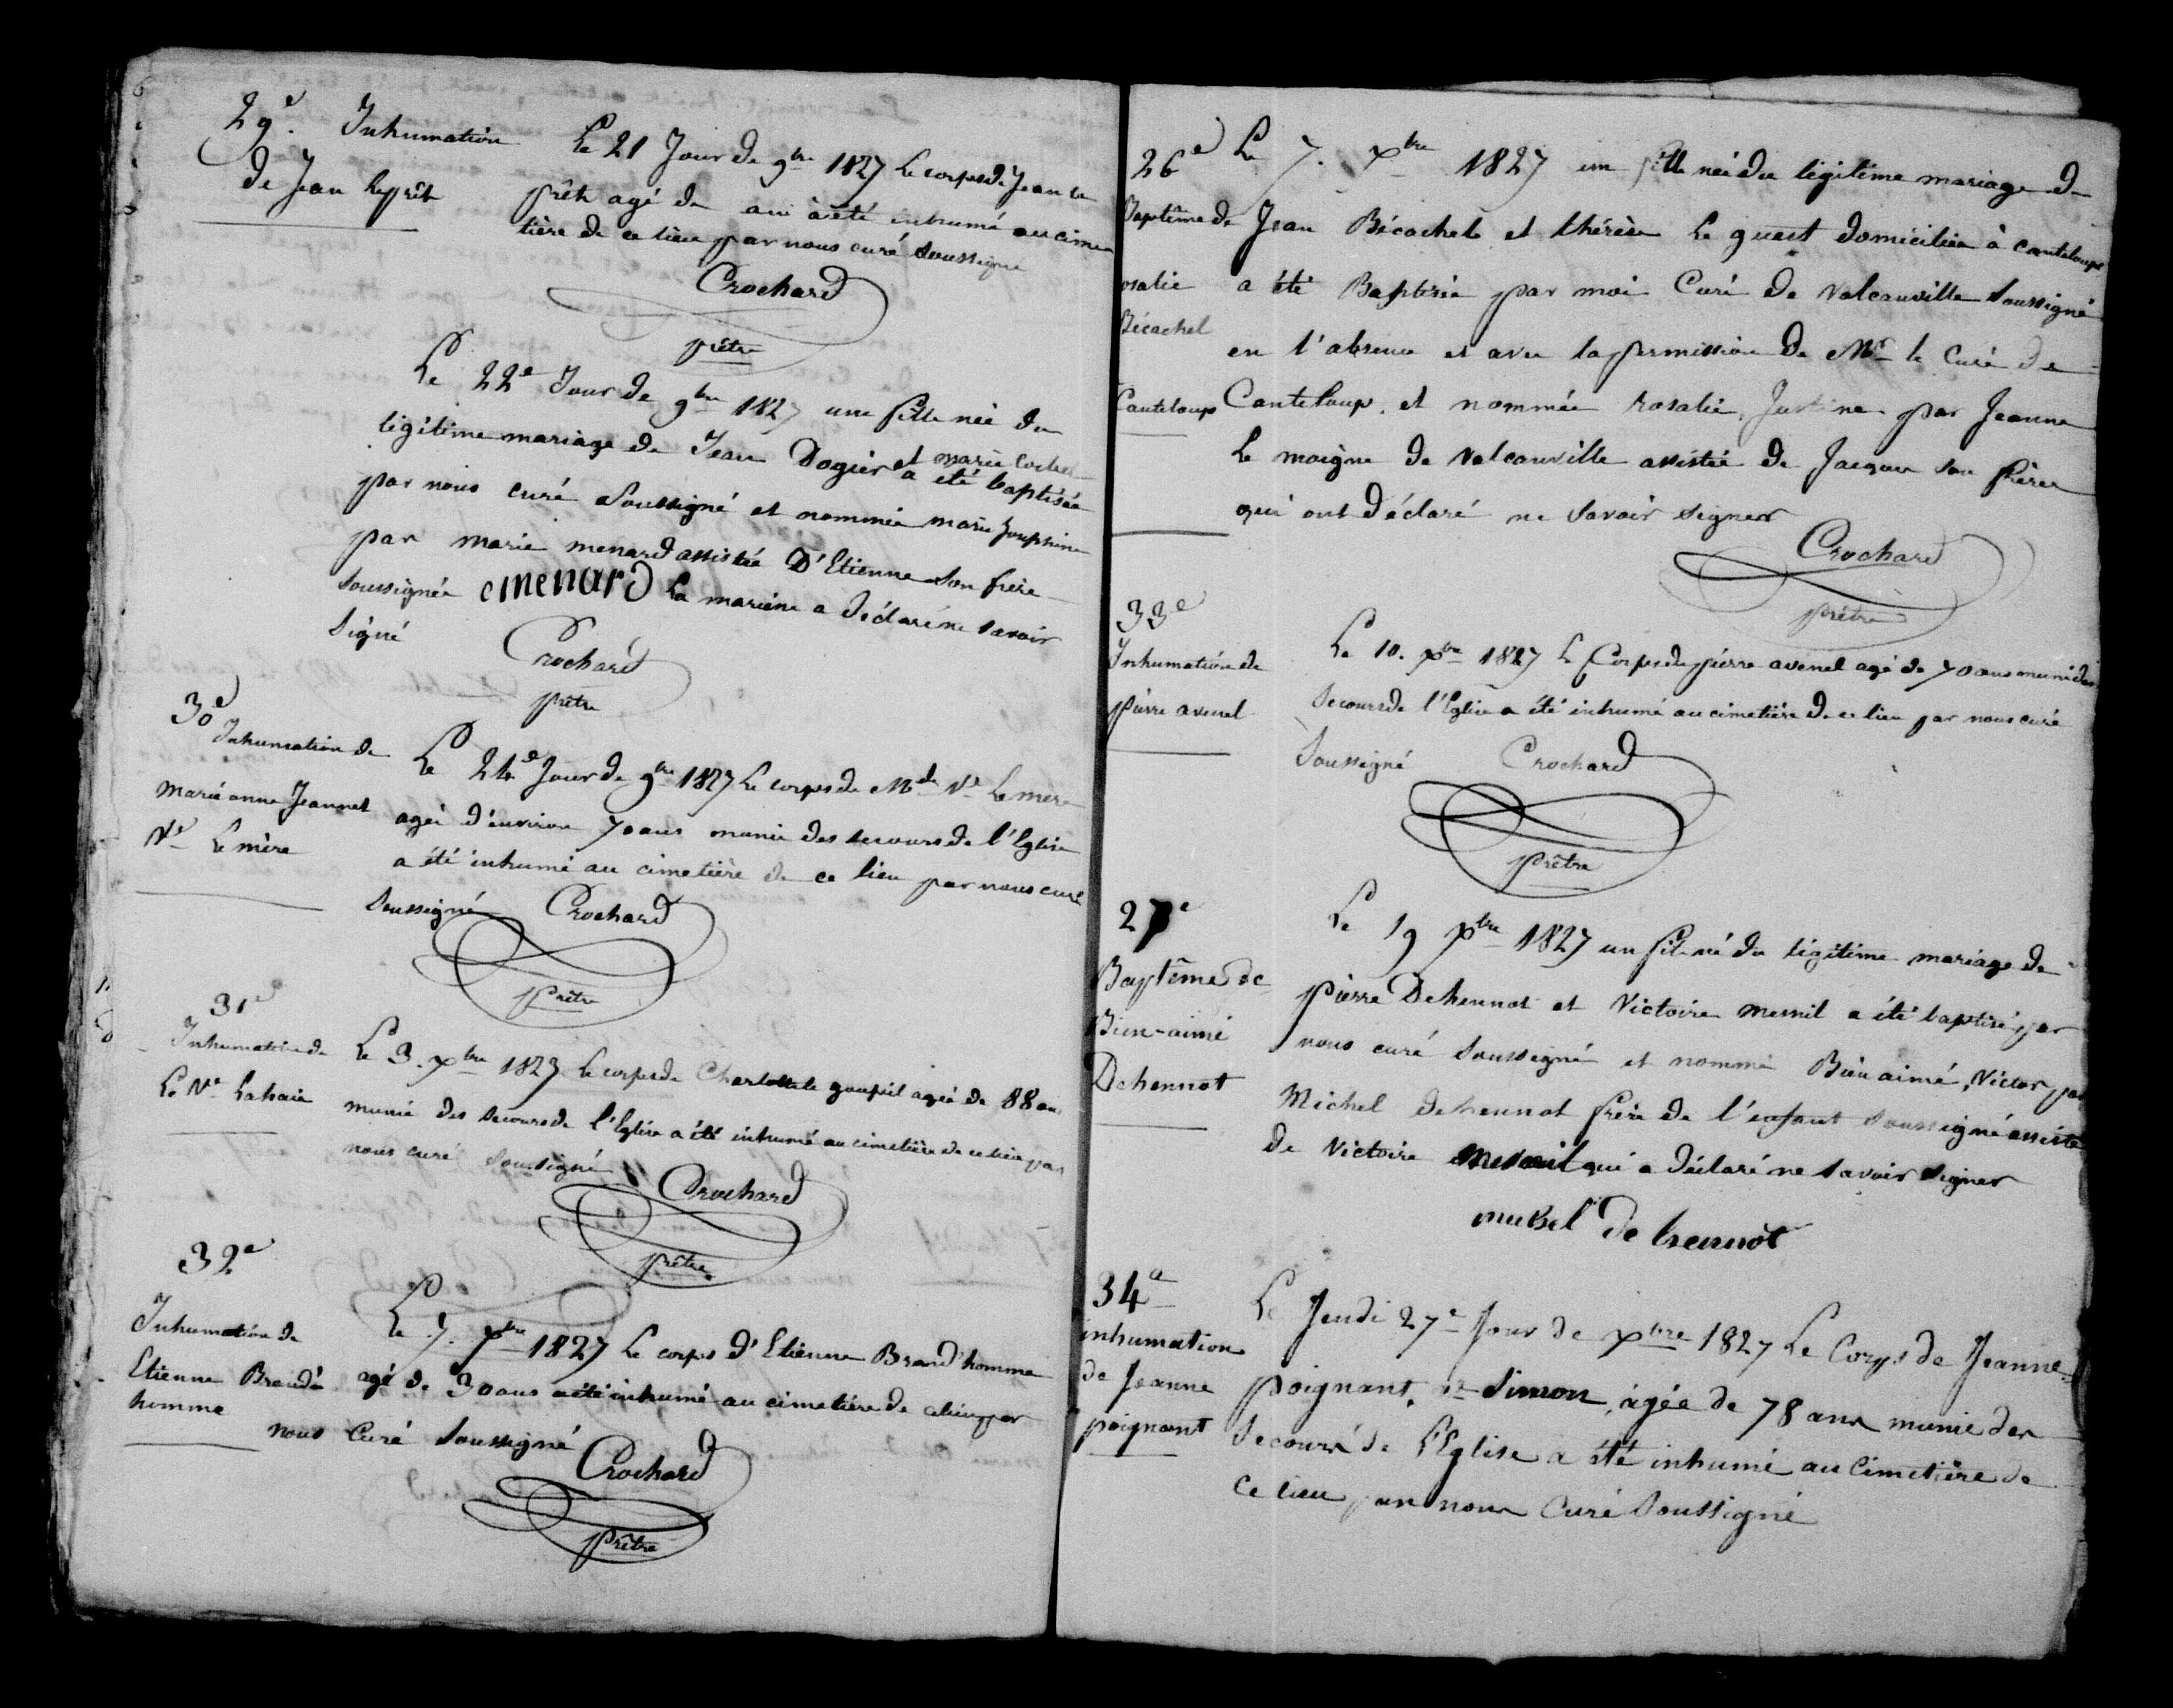 29e. Inhumation
de Jean le prêt
Le 21 Jour de 9bre 1827 le corps de Jean le
prêt agé de ans a été inhumé au cime
tière de ce lieu par nous curé soussigné
Crochard
prêtre
Le 22e Jour de 9bre 1827 une fille née du
légitime mariage de Jean Dogier et marie
a été baptisée
par nous curé soussigné et nommée marie Josephine
par marie menard assistée D'Etienne son frère
soussigné menard La marène a déclaré ne savoir
signé
Crochard
prêtre
30e
Inhumation de
marie anne Jeannet
Ve Le mère
Le 24e Jour de 9bre 1827 Le corps de Mde Ve Le mere
agée d'environ 70 ans munie des secours de l'Eglise
a été inhumé au cimetière de ce lieu par nous curé
soussigné Crochard
prêtre
31e
Inhumation de
La Ve Lahaie
Le 3. xbre 1827 Le corps de Charlotte le goupil agée de 88 ans
munie des secours de l'Eglise a été inhumé au cimetière de ce lieu par
nous curé soussigné
Crochard
prêtre
32e
Inhumation de
Etienne Brand'
homme
Le 7. xbre 1827 Le corps d'Etienne Brand'homme
agé de 30 ans a été inhumé au cimetière de ce lieu par
nous Curé soussigné
Crochard
prêtre
26e
Baptême de
rosalie
Bécachel
Canteloup
Le 7. xbre 1827 une fille née du légitime mariage de
Jean Bécachel et thérèse Le guest domiciliée à canteloup
a été Baptisée par moi Curé de Valcauville soussigné
en l'absence et avec la permission de Mr le Curé de
Canteloup, et nommée rosalie, Justine par Jeanne
Le moigne de Valcauville assistée de Jacques son frère
qui ont déclaré ne savoir signer
Crochard
prêtre
33e
Inhumation de
pierre avenel
Le 10. xbre 1827 Le Corps de pierre avenel agé de 70 ans muni des
secours de l'Eglise a été inhumé au cimetière de ce lieu par nous curé
soussigné Crochard
prêtre
27e
Baptême de
Bien-aimé
Dehennot
Le 19 xbre 1827 un fils né du légitime mariage de
pierre Dehennot et Victoire mesnil a été baptisé par
nous curé soussigné et nommé Bien aimé, Victor par
Michel dehennot frère de l'enfant soussigné assisté
de Victoire mesnil qui a déclaré ne savoir signer
michel de hennot
34e
inhumation
de Jeanne
poignant
Le Jeudi 27e Jour de xbre 1827 Le Corps de Jeanne
poignant, Ve Simon, agée de 78 ans munie des
Secours de l'Eglise a été inhumé au Cimetière de
Ce lieu par nous Curé Soussigné